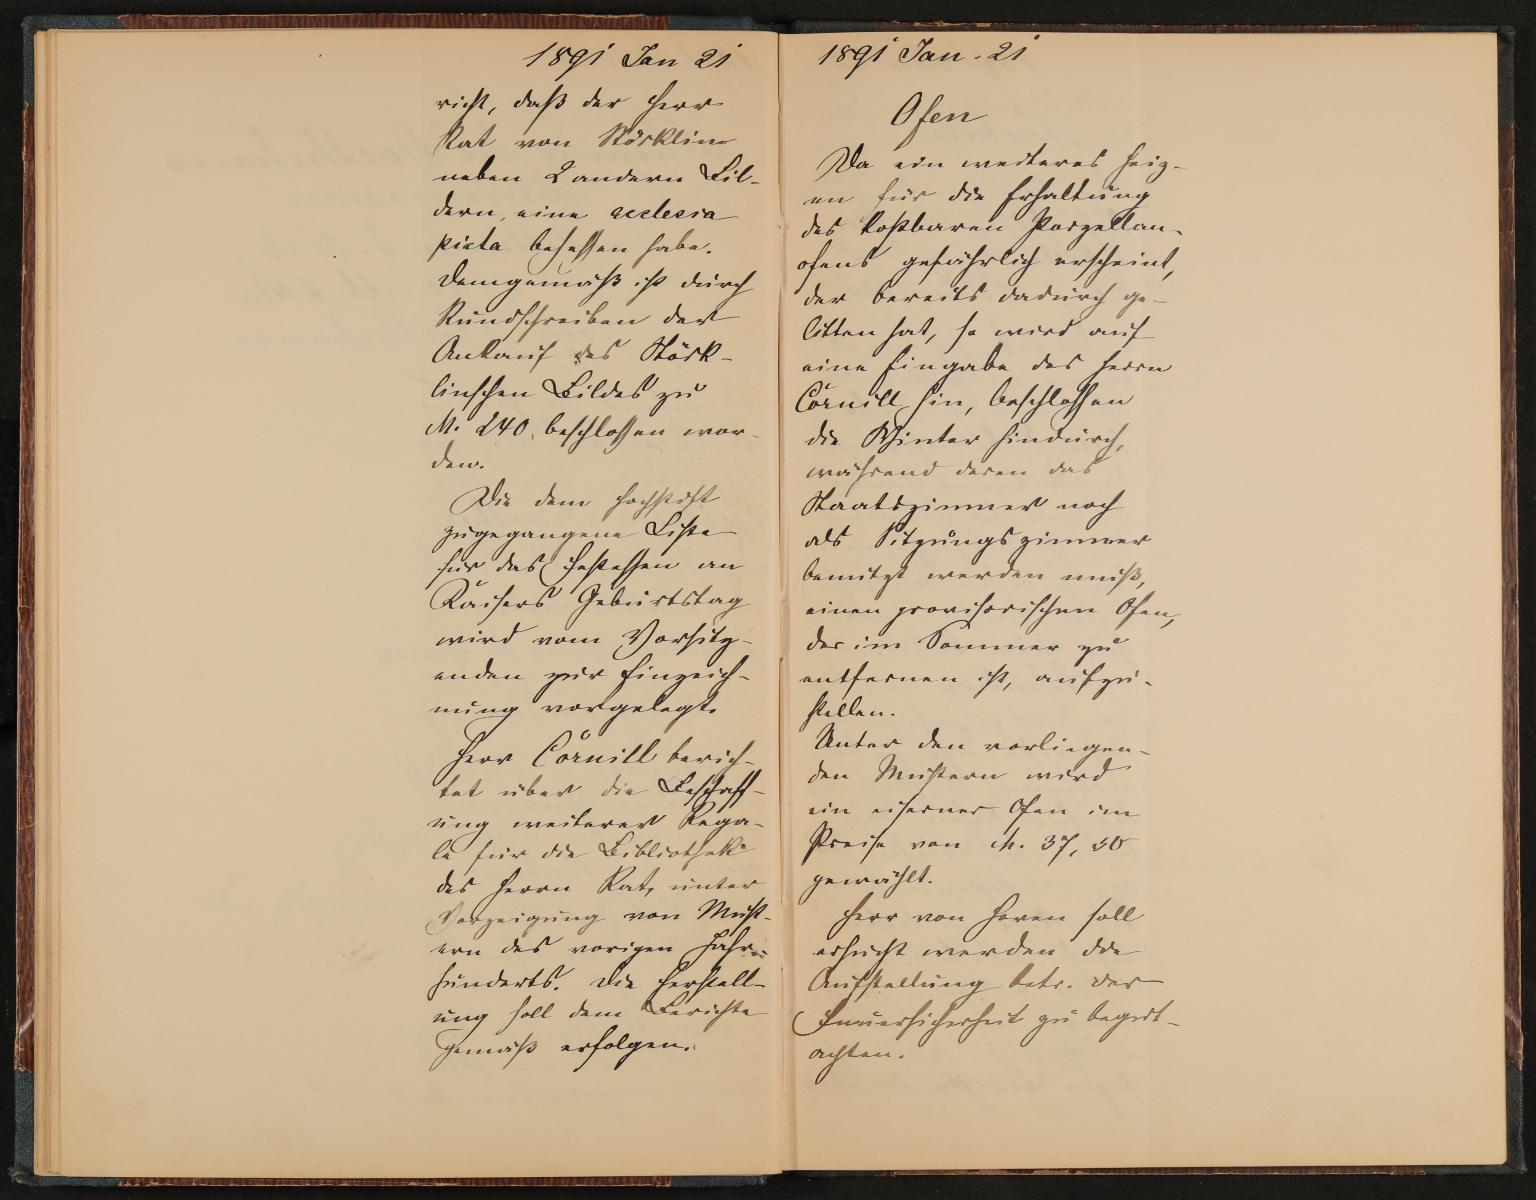 1891 Jan 21
richt, daß der Herr
Rat von Stöcklin
neben 2 andern Bil-
dern, eine ecclesia
picta besessen habe.
Demgemäß ist durch
Rundschreiben der
Ankauf des Stöck-
linschen Bildes zu
M. 240, beschlossen wor-
den.
Die dem Hochstift
zugegangene Liste
für das Festessen an
Kaisers Geburtstag
wird vom Vorsitz-
enden zur Einzeich-
nung vorgelegt.
Herr Cornill berich-
tet über die Beschaff-
ung weiterer Rega-
le für die Bibliothek
des Herrn Rat, unter
Vorzeigung von Must-
ern des vorigen Jahr-
hunderts. Die Herstell-
ung soll dem Berichte
gemäß erfolgen.
1891 Jan. 21
Ofen
Da ein weiteres Heiz-
en für die Erhaltung
des kostbaren Porzellan-
ofens gefährlich erscheint,
der bereits dadurch ge-
litten hat, so wird auf
eine Eingabe des Herrn
Cornill hin, beschlossen
die Winter hindurch,
während deren das
Staatszimmer noch
als Sitzungszimmer
benutzt werden muß,
einen provisorischen Ofen,
der im Sommer zu
entfernen ist, aufzu-
stellen.
Unter den vorliegen-
den Mustern wird
ein eiserner Ofen im
Preise von M. 37,50
gewählt.
Herr von Hoven soll
ersucht werden die
Aufstellung betr. der
Feuersicherheit zu begut-
achten.